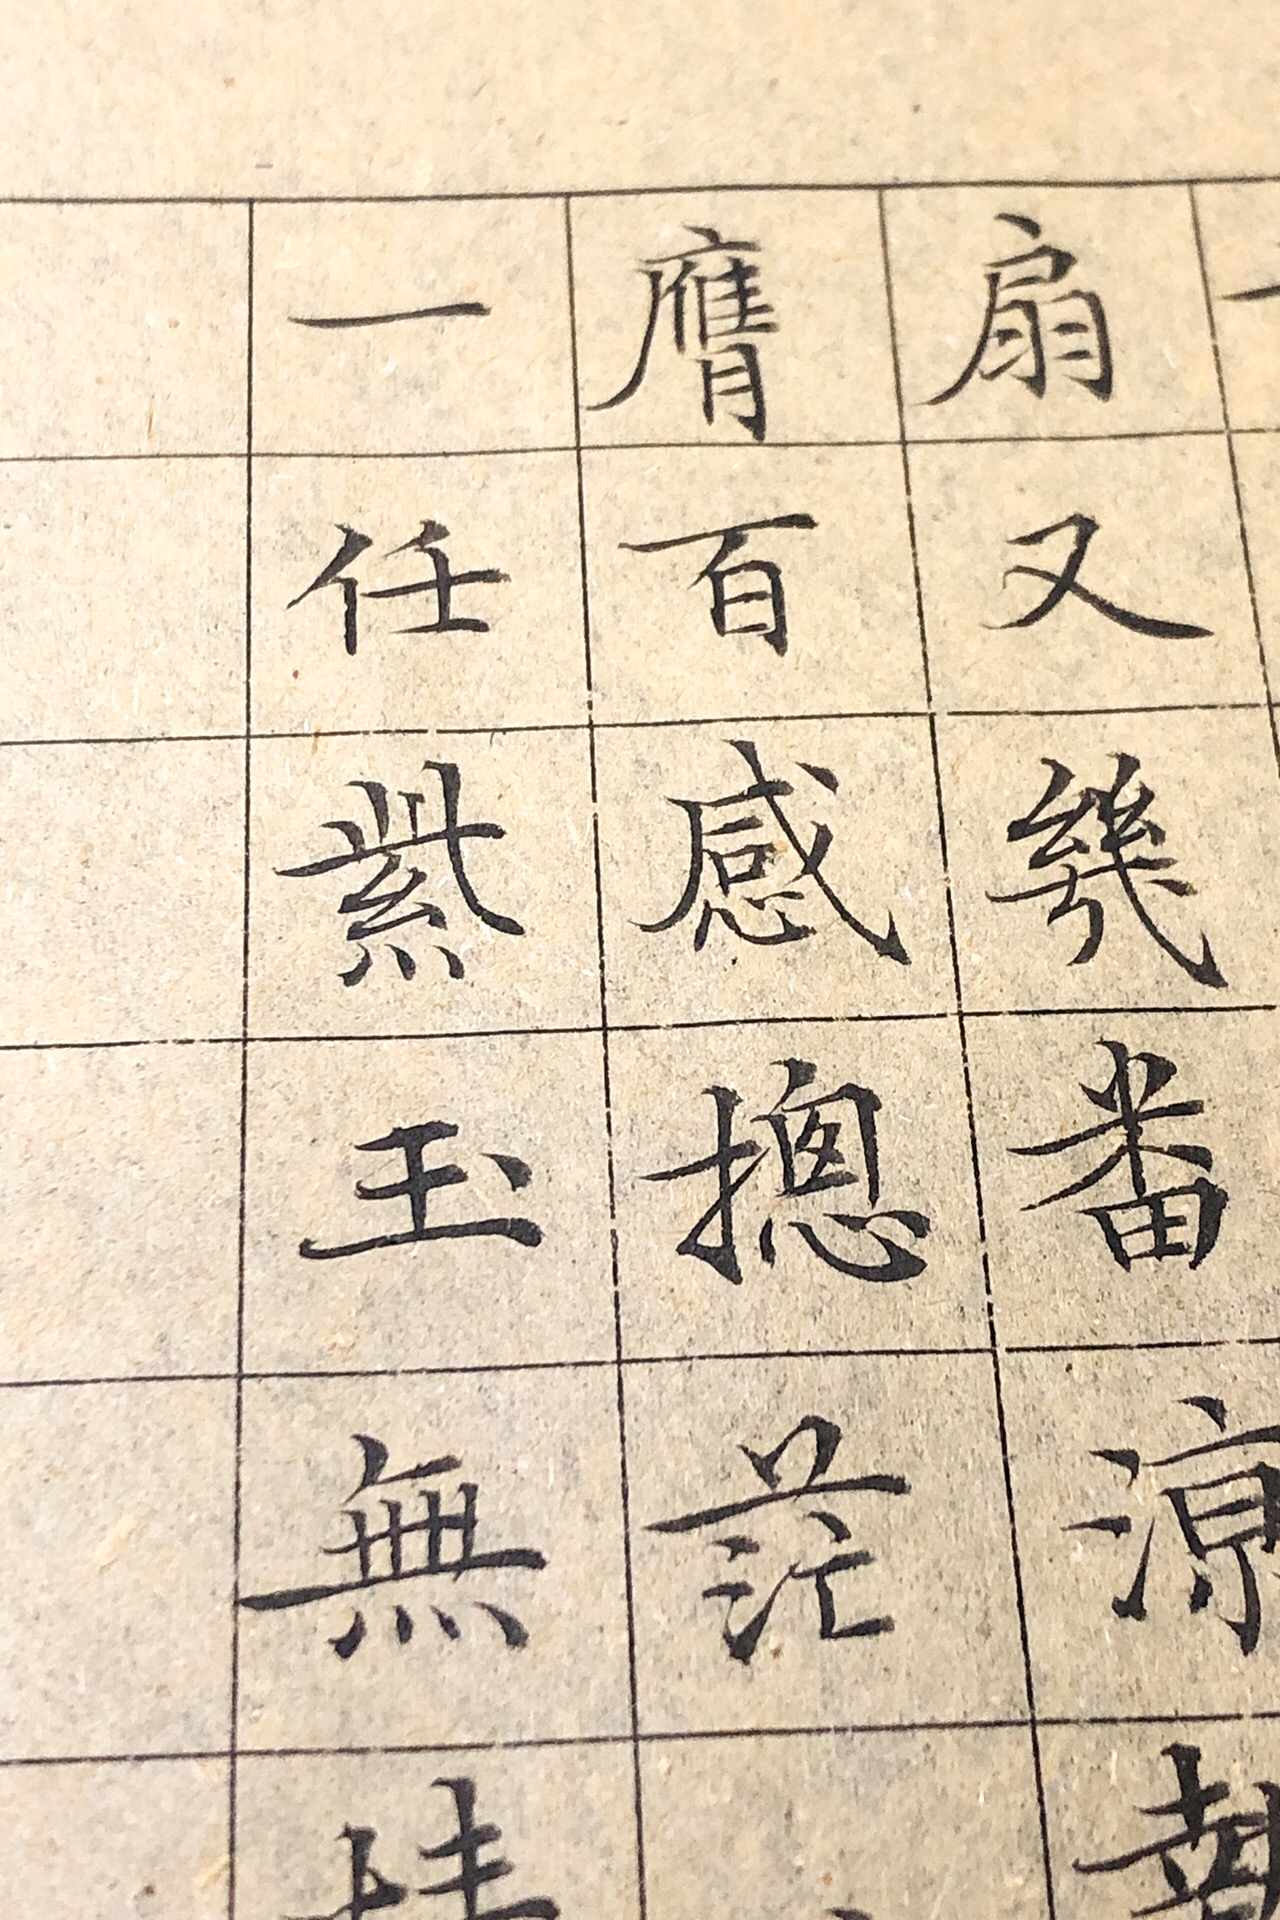 扇又幾番涼
膺百感摠茫
一任紫玉無